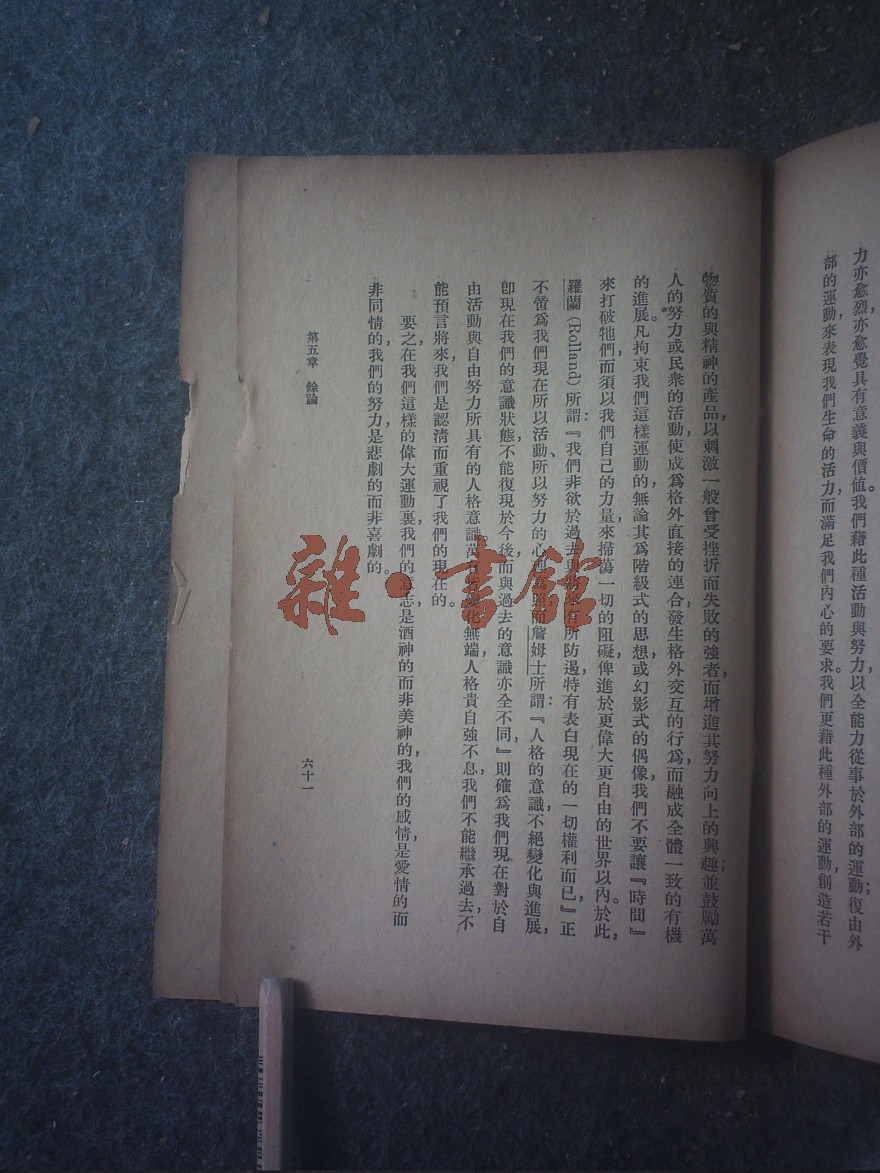 力亦愈烈,亦愈覺具有意義與價值。我們藉此種活動與努力,以全能力從事於外部的運動;復由外
部的運動,來表現我們生命的活力,而滿足我們內心的要求。我們更藉此種外部的運動,創造若干
物質的與精神的產品,以刺激一般曾受挫折而失敗的強者,而增進其努力向上的興趣;並鼓勵萬
人的努力或民衆的活動,使成爲格外直接的連合,發生格外交互的行爲,而融成全體一致的有機
的進展。凡拘束我們這樣運動的,無論其爲階級式的思想,或幻影式的偶像,我們不要讓『時間』
來打破牠們,而須以我們自己的力量,來掃蕩一切的阻礙,俾進於更偉大更自由的世界以內。於此,
羅蘭(Rolland)所謂:『我們非欲於過去與將來有所防遏,特有表白現在的一切權利而已,』正
不啻爲我們現在所以活動、所以努力的心理寫照。而詹姆士所謂:『人格的意識,不絕變化與進展,
卽現在我們的意識狀態,不能復現於今後,而與過去的意識亦全不同,』則確爲我們現在對於自
由活動與自由努力所具有的人格意識。萬有變化無端,人格貴自強不息,我們不能繼承過去,不
能預言將來,我們是認清而重視了我們的現在的。
要之,在我們這樣的偉大運動裏,我們的意志是酒神的而非美神的,我們的感情是愛情的而
非同情的,我們的努力,是悲劇的而非喜劇的。
第五章 餘論
六十一
雜·書館